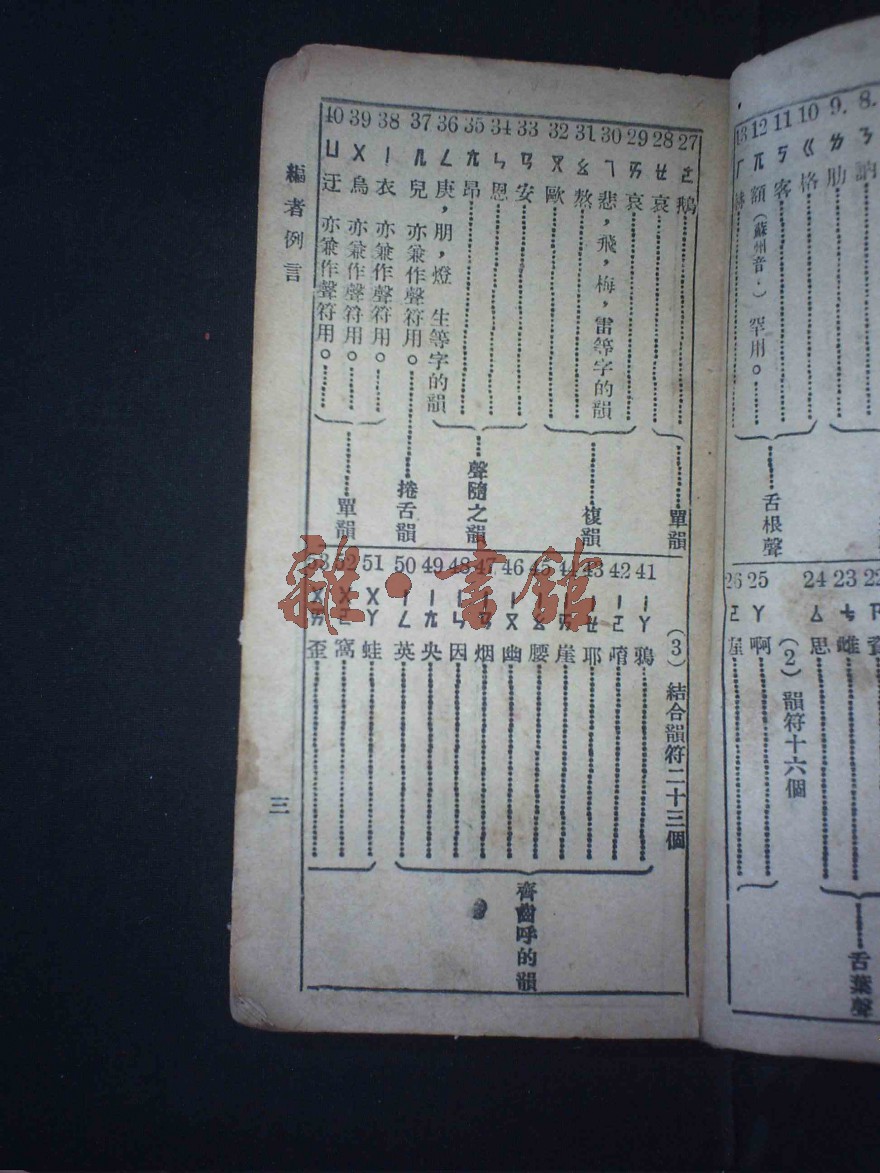 8. ㄋ 訥
9. ㄌ 肋
10 ㄍ 格
11 ㄎ 客
12 ㄫ 額(蘇州音.) 罕用。
13 ㄏ
舌根聲
22 ㄗ
23 ㄘ 雌
24 ㄙ 思
舌葉聲
(2)韻符十六個
25 ㄚ 啊
26 ㄛ
27 ㄜ 鵝
28 ㄝ 哀
單韻
29 ㄞ 哀
30 ㄟ 悲,飛,梅,雷等字的韻
31 ㄠ 熬
32 ㄡ 歐
複韻
33 ㄢ 安
34 ㄣ 恩
35 ㄤ 昂
36 ㄥ 庚,朋,燈 生等字的韻
聲隨之韻
37 ㄦ 兒 亦兼作聲符用。
捲舌韻
38 ㄧ 衣 亦兼作聲符用。
39 ㄨ 烏 亦兼作聲符用。
40 ㄩ 迂 亦兼作聲符用。
單韻
(3)結合韻符二十三個
41 ㄧㄚ 鴉
42 ㄧㄛ 唷
43 ㄧㄝ 耶
44 ㄧㄞ 崖
45 ㄧㄠ 腰
46 ㄧㄡ 幽
47 ㄧㄢ 烟
48 ㄧㄣ 因
49 ㄧㄤ 央
50 ㄧㄥ 英
齊齒呼的韻
51 ㄨㄚ 蛙
52 ㄨㄛ 窩
53 ㄨㄞ 歪
編者例言
三
雜·書館